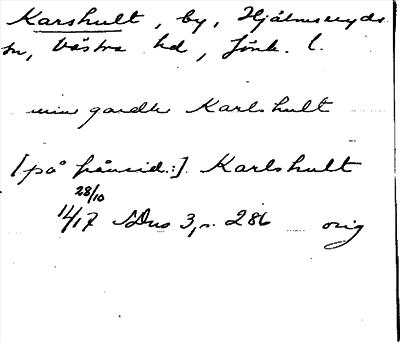 Karshult, by, Hjälmseryds
sn, Västra hd, Jönk. l.
min gardh Karlshult
[på frånsid.:] Karlshult
28/10
1417 SDns 3, s. 286 orig